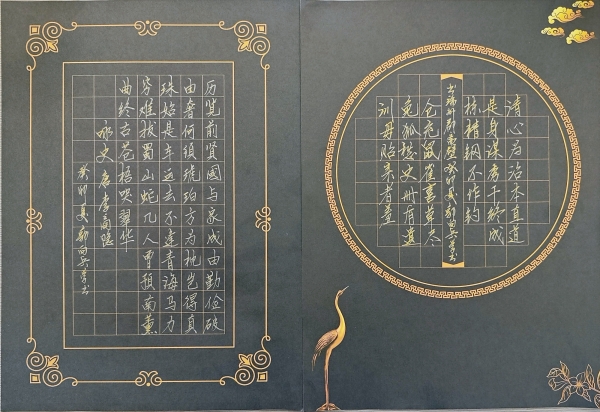 历览前贤國与家成由勤俭破
由奢何須琥珀方为枕岂得真
珠始是车运去不逢青海马力
穷难拔蜀山蛇几人曾预南薰
曲终古苍梧哭翠华
咏史 唐 李商隐
癸卯夏
清心为治本直道
是身谋秀干终成
栋精钢不作钩
书端州郡斋壁 癸卯夏
仓充鼠雀喜草尽
兔狐愁史册有遗
训毋贻来者羞